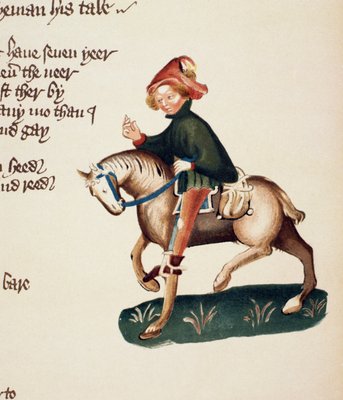 yeman his tale
haue seuen yeer
the neer
st ther by
any mo than I
nd gay
heed
nd reed
bare
rto